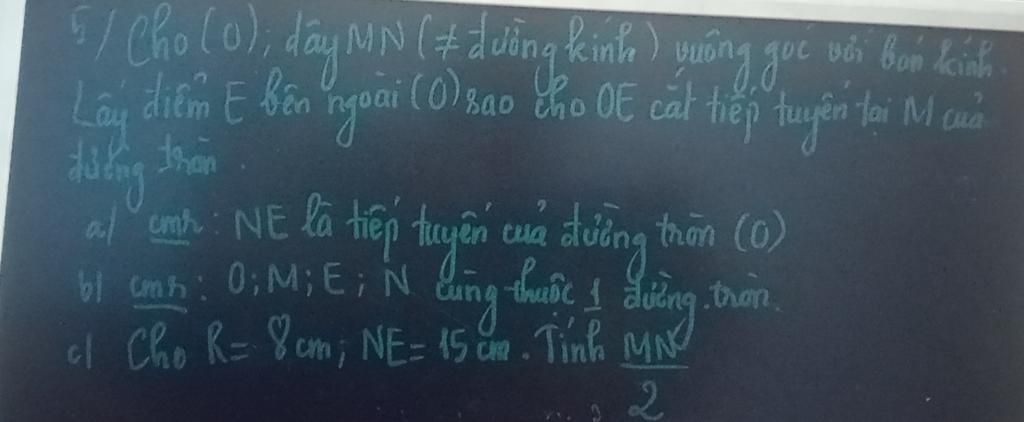 5/ Cho (O), dây MN (≠ đường kính) vuông góc với bán kính.
Lấy điểm E bên ngoài (O) sao cho OE cắt tiếp tuyến tại M của
đường tròn.
a/ cmr: NE là tiếp tuyến của đường tròn (O)
b/ cmr: O; M; E; N cùng thuộc 1 đường tròn.
c/ Cho R = 8 cm; NE = 15 cm. Tính MN/2